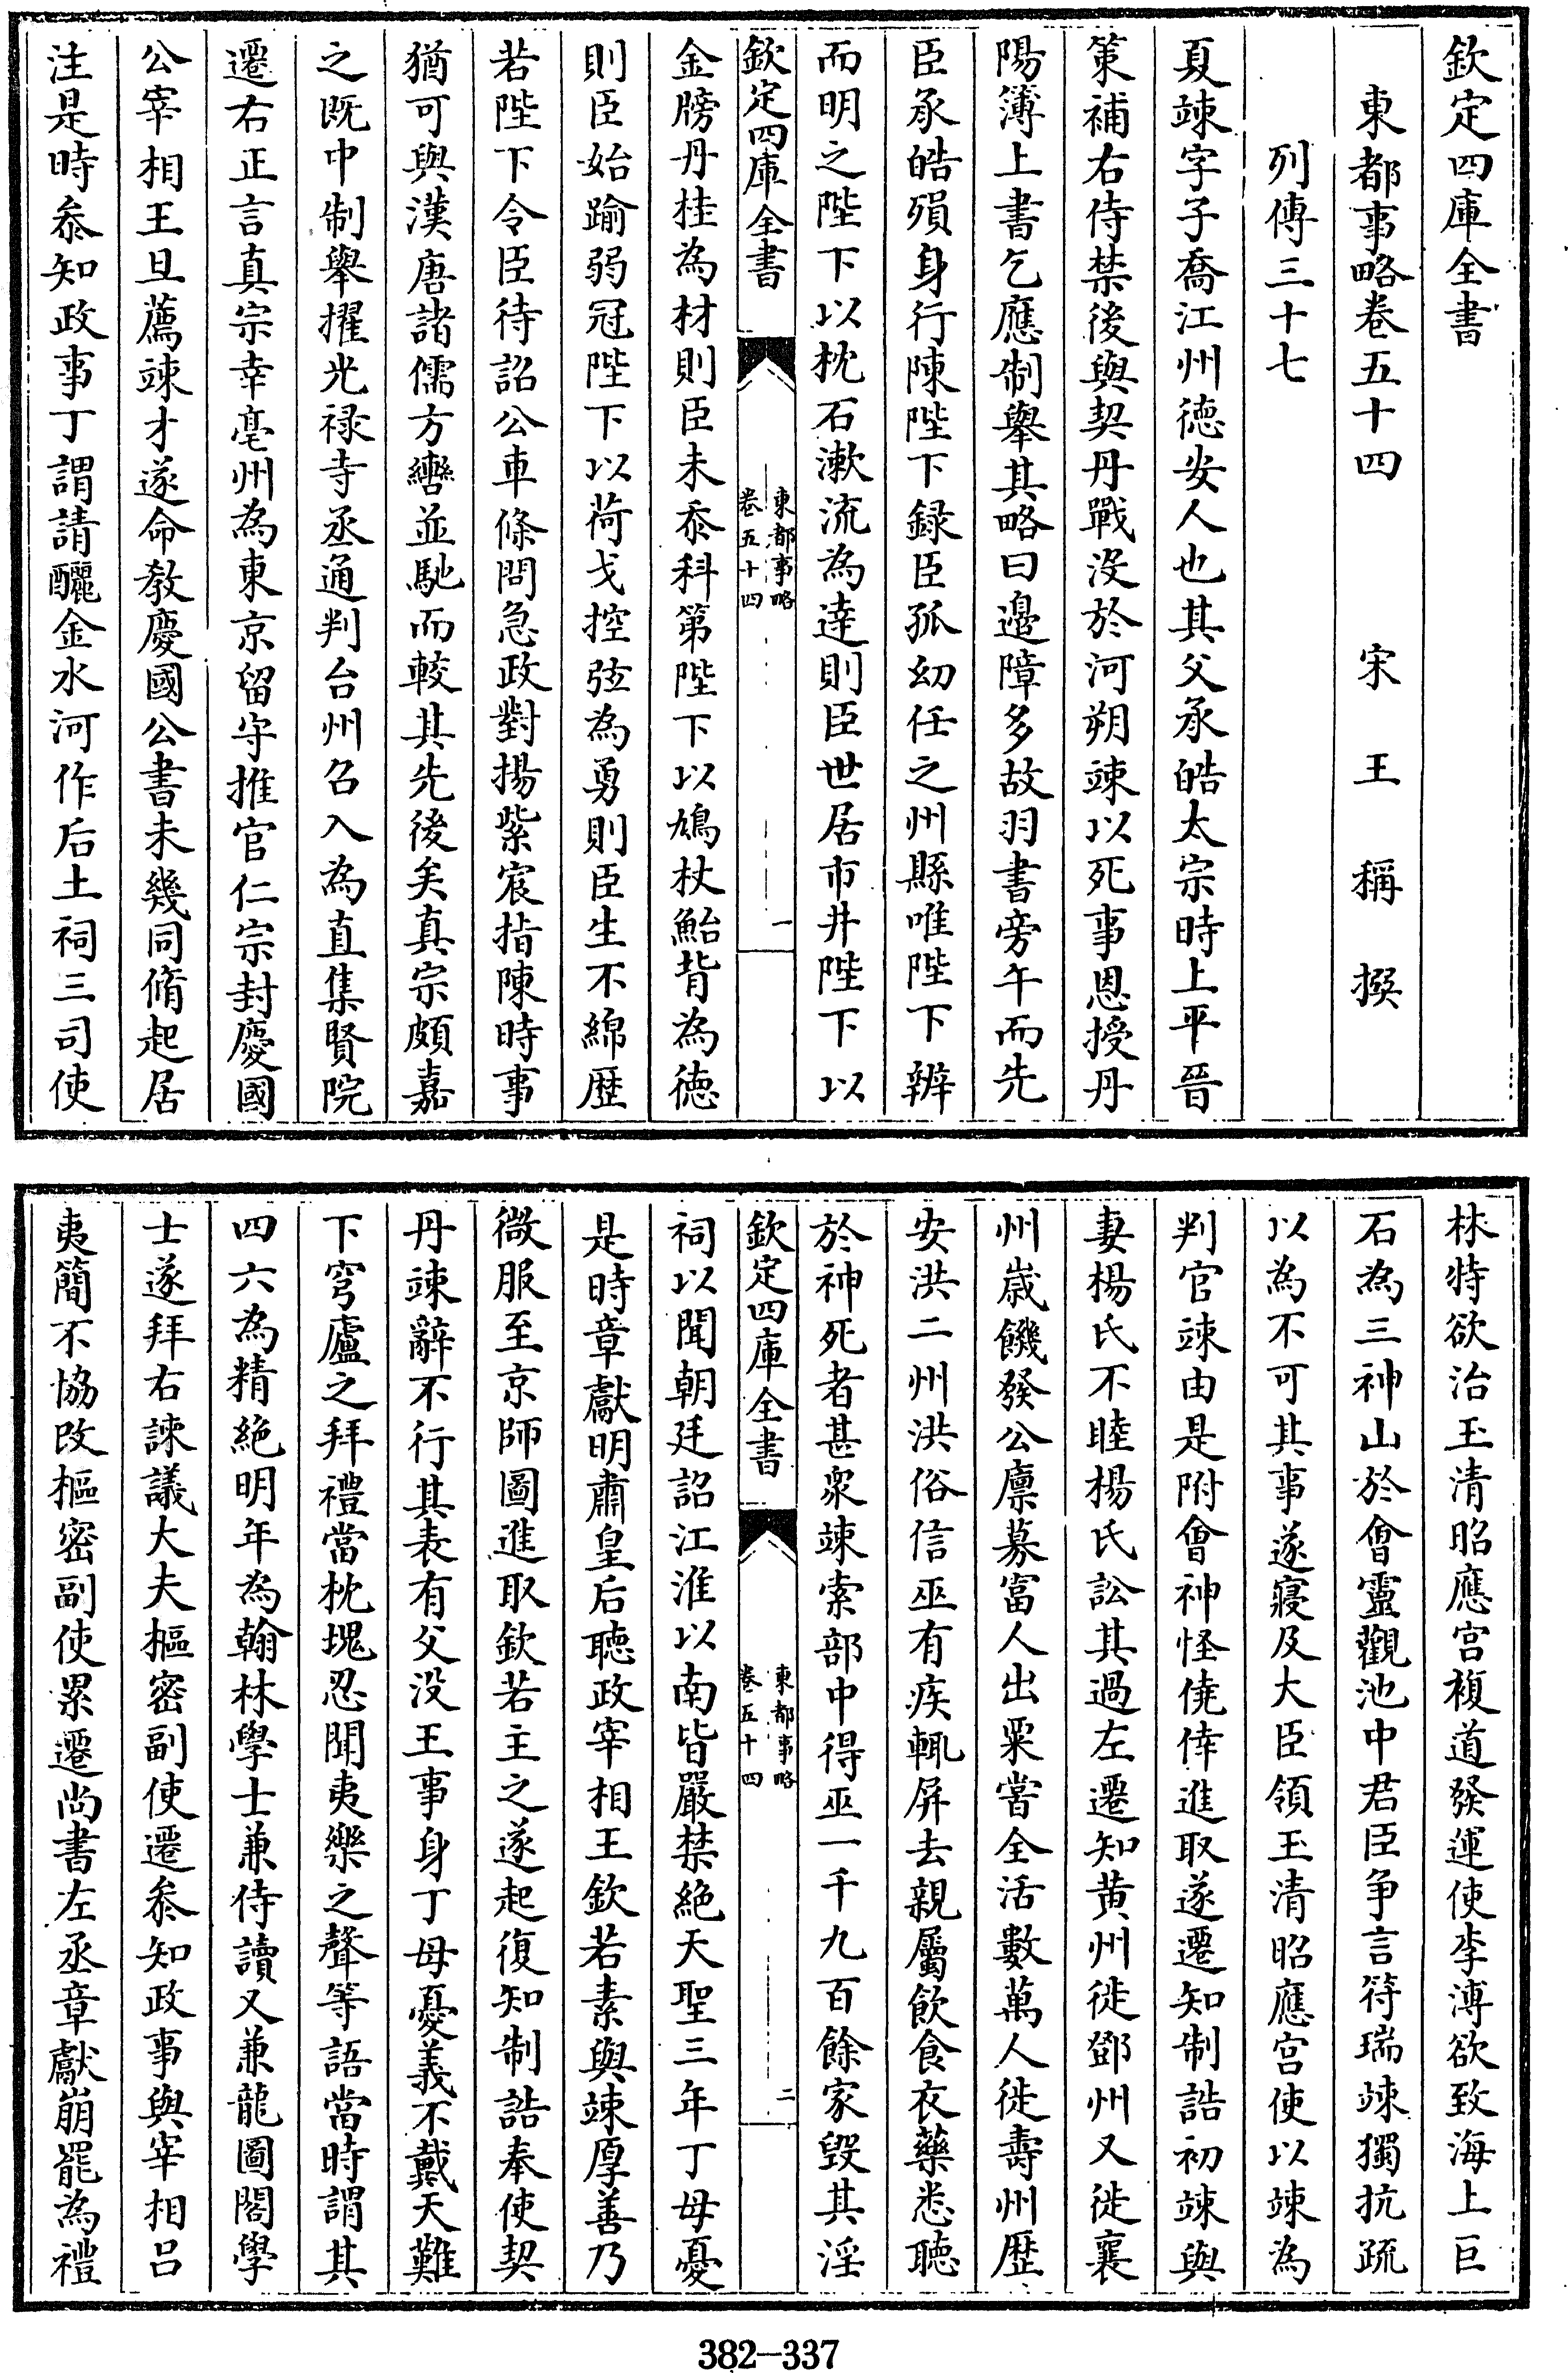 欽定四庫全書
東都事略卷五十四　宋　王　稱　撰
列傳三十七
夏竦字子喬江州德安人也其父承皓太宗時上平晉
策補右侍禁後與契丹戰没於河朔竦以死事恩授丹
陽簿上書乞應制舉其略曰邊障多故羽書旁午而先
臣承皓殞身行陳陛下録臣孤幼任之州縣唯陛下辨
而明之陛下以枕石漱流為達則臣世居市井陛下以
欽定四庫全書
東都事略
卷五十四
一
金牓丹桂為材則臣未忝科第陛下以鳩杖鮐背為德
則臣始踰弱冠陛下以荷戈控弦為勇則臣生不綿歴
若陛下令臣待詔公車條問急政對揚紫宸指陳時事
猶可與漢唐諸儒方轡並馳而較其先後矣真宗頗嘉
之既中制舉擢光禄寺丞通判台州召入為直集賢院
遷右正言真宗幸亳州為東京留守推官仁宗封慶國
公宰相王旦薦竦才遂命教慶國公書未幾同脩起居
注是時叅知政事丁謂請釃金水河作后土祠三司使
林特欲治玉清昭應宫複道發運使李溥欲致海上巨
石為三神山於㑹靈觀池中君臣争言符瑞竦獨抗疏
以為不可其事遂寢及大臣領玉清昭應宫使以竦為
判官竦由是附㑹神怪僥倖進取遂遷知制誥初竦與
妻楊氏不睦楊氏訟其過左遷知黄州徙鄧州又徙襄
州嵗饑發公廪募富人出粟嘗全活數萬人徙壽州歴
安洪二州洪俗信巫有疾輒屏去親屬飲食衣藥悉聽
於神死者甚衆竦索部中得巫一千九百餘家毁其淫
欽定四庫全書
東都事略
卷五十四
二
祠以聞朝廷詔江淮以南皆嚴禁絶天聖三年丁母憂
是時章獻明肅皇后聽政宰相王欽若素與竦厚善乃
微服至京師圖進取欽若主之遂起復知制誥奉使契
丹竦辭不行其表有父没王事身丁母憂義不戴天難
下穹廬之拜禮當枕塊忍聞夷樂之聲等語當時謂其
四六為精絶明年為翰林學士兼侍讀又兼龍圖閣學
士遂拜右諫議大夫樞密副使遷叅知政事與宰相吕
夷簡不協改樞密副使累遷尚書左丞章獻崩罷為禮
382—337